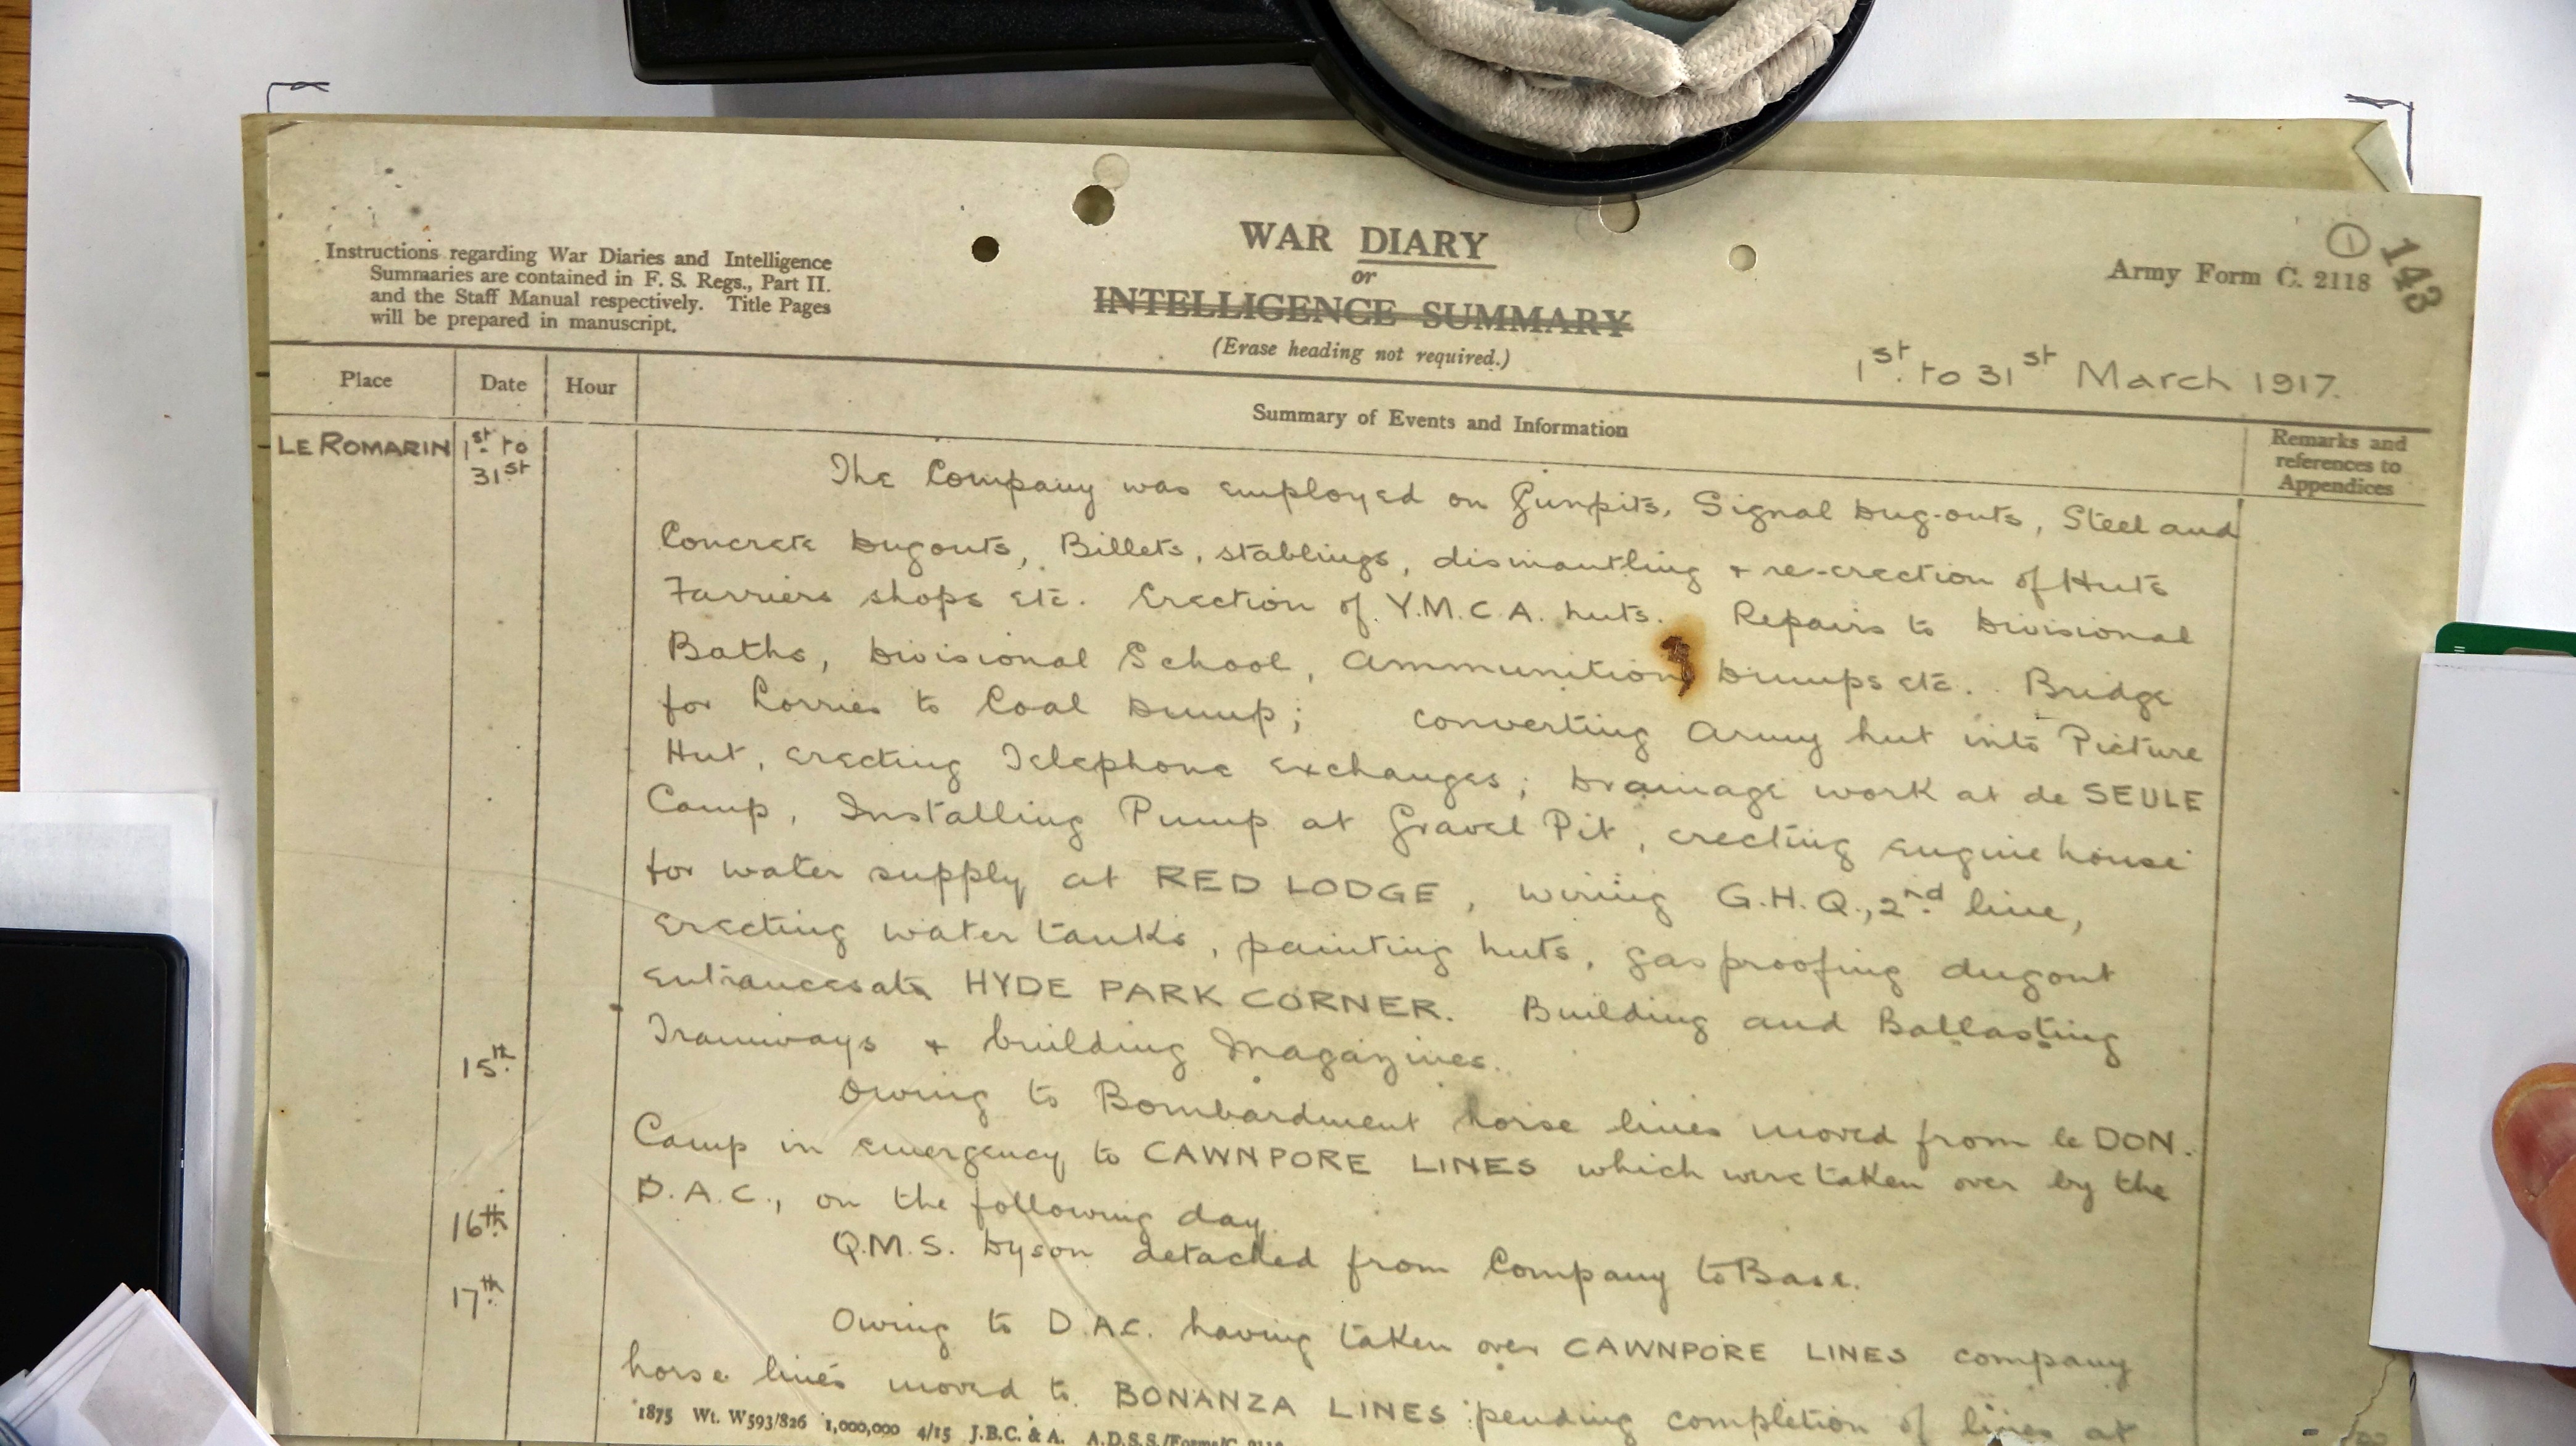 Instructions regarding War Diaries and Intelligence
Summaries are contained in F. S. Regs., Part II.
and the Staff Manual respectively. Title Pages
will be prepared in manuscript.
WAR DIARY
or
INTELLIGENCE SUMMARY
(Erase heading not required.)
1
143
Army Form C. 2118
1st. to 31st March 1917.
Place
Date
Hour
Summary of Events and Information
Remarks and
references to
Appendices
LE ROMARIN
1st. to
31st
The Company was employed on Gunpits, Signal Dug-outs, Steel and
Concrete Dugouts, Billets, stablings, dismantling + re-erection of Huts
Farriers shops etc. Erection of Y.M.C.A. huts. Repairs to Divisional
Baths, Divisional School, Ammunition Dumps etc. Bridge
for Lorries to Coal Dump; converting Army hut into Picture
Hut, erecting Telephone exchanges; Drainage work at de SEULE
Camp, Installing Pump at Gravel Pit, erecting engine house
for water supply at RED LODGE, wiring G.H.Q., 2nd. line,
erecting water tanks, painting huts, gasproofing dugout
entrances at HYDE PARK CORNER. Building and Ballasting
Tramways + building Magazines.
15th.
Owing to Bombardment horse lines moved from le DON.
Camp in emergency to CAWNPORE LINES which were taken over by the
D.A.C., on the following day.
16th.
Q.M.S. Dyson detached from Company to Base.
17th.
Owing to D.A.C. having taken over CAWNPORE LINES company
horse lines moved to BONANZA LINES pending completion of lines at
1875 Wt. W593/826 1,000,000 4/15 J.B.C. & A. A.D.S.S./Forms/C. 2118